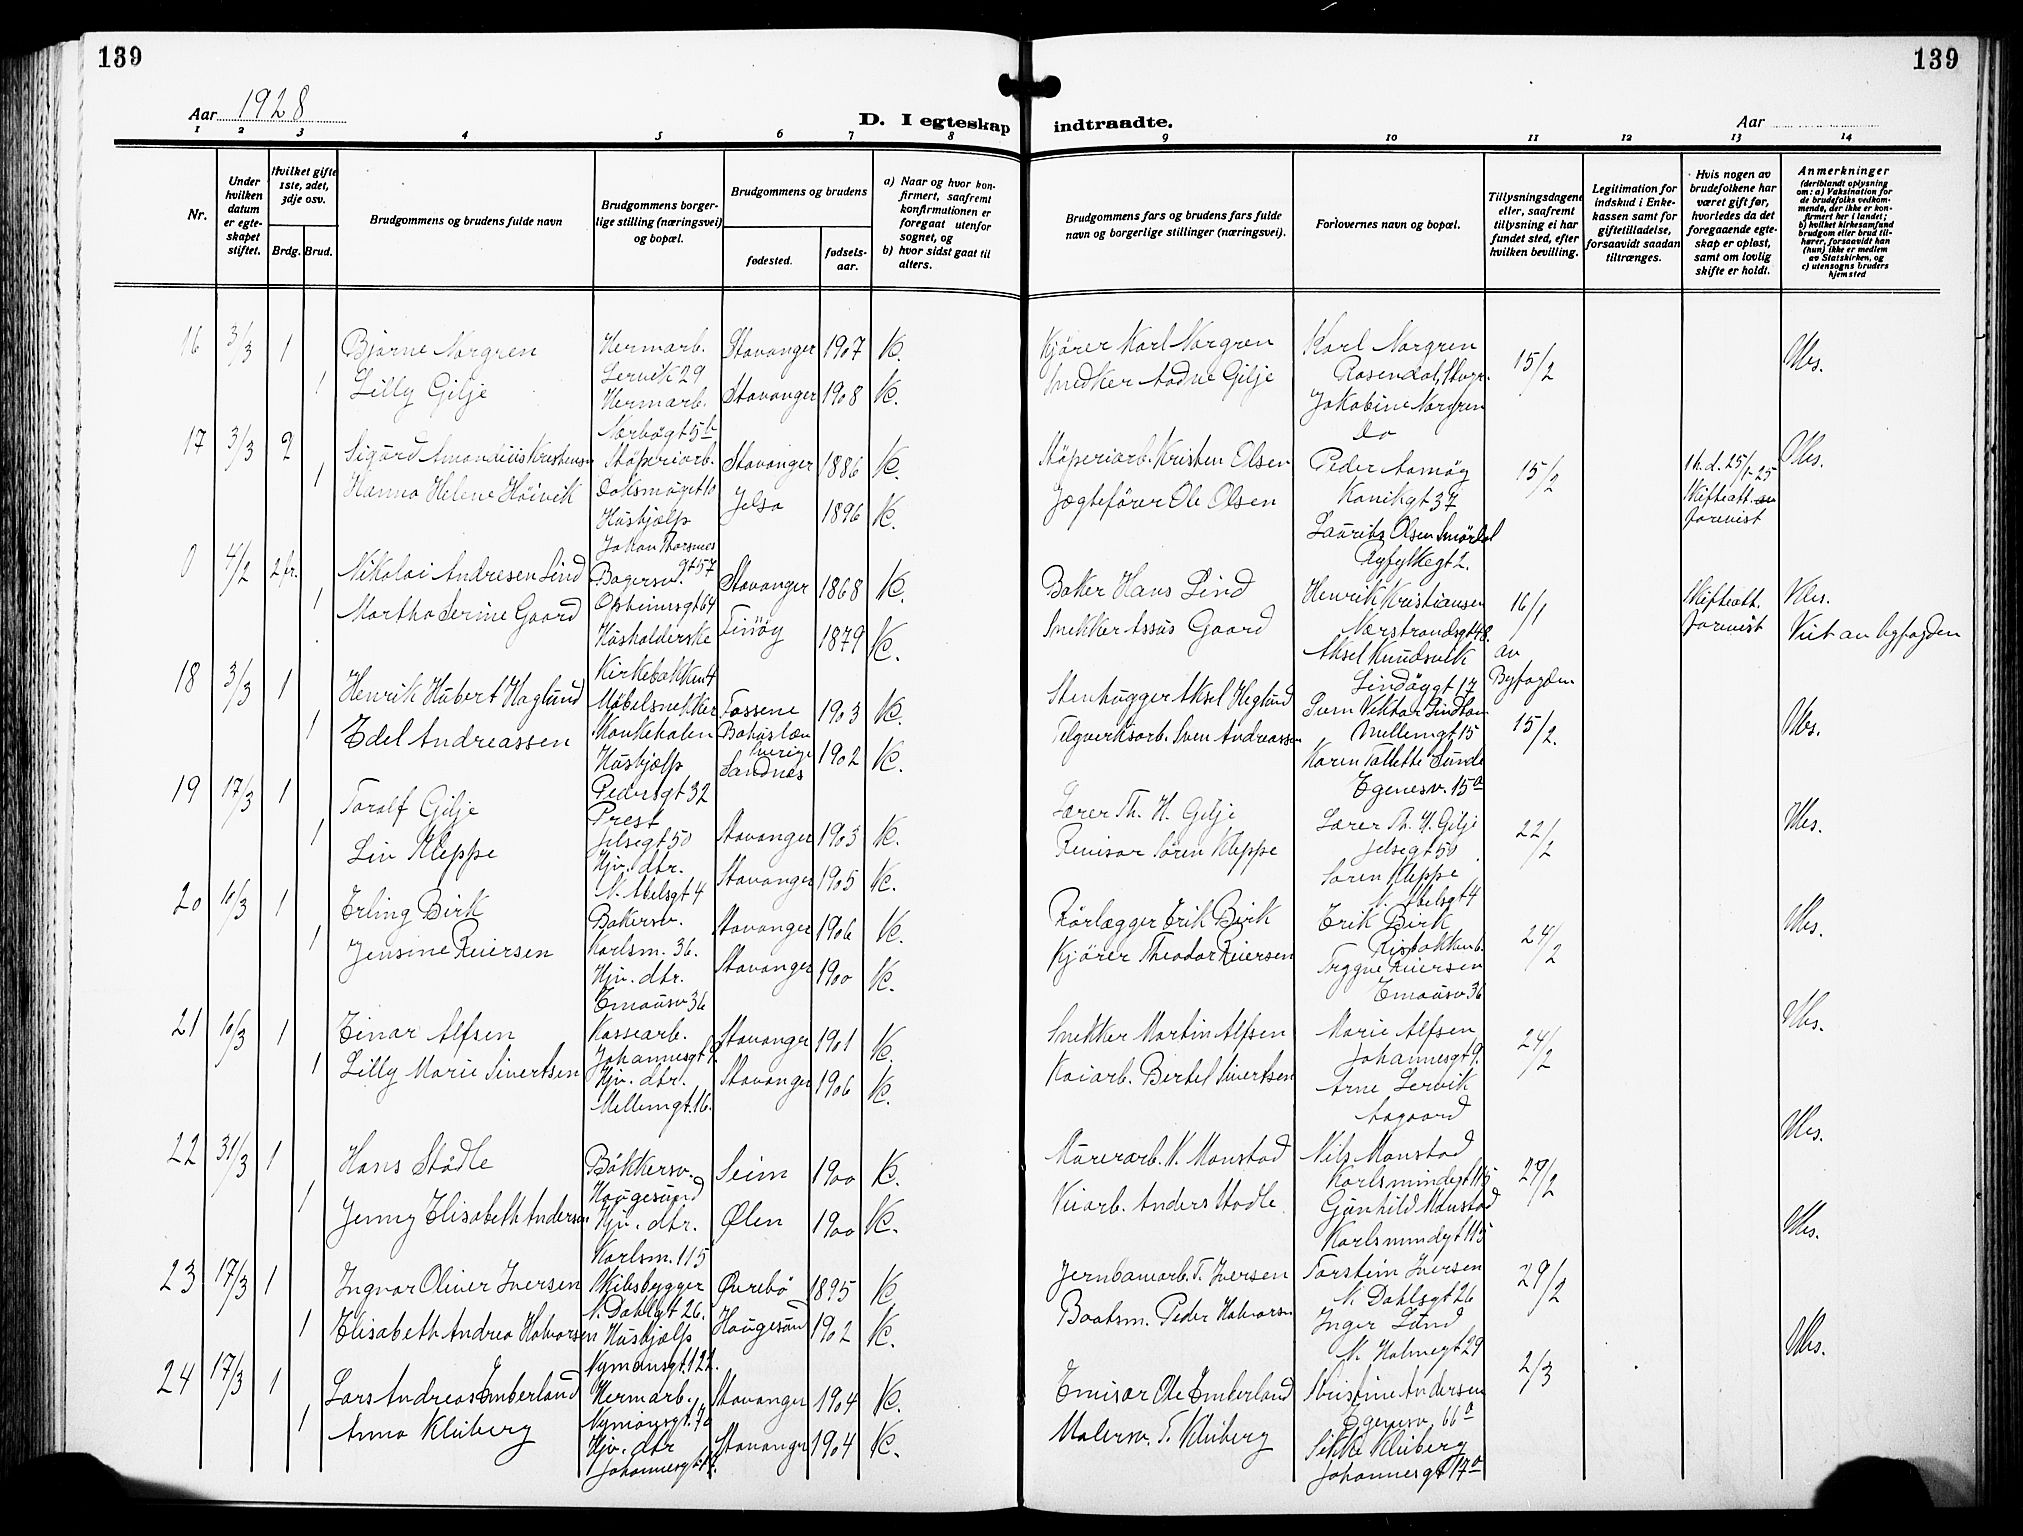 139
139
Aar 1928
D. I egteskap indtraadte.
Aar
1 2 3 4 5 6 7 8 9 10 11 12 13 14
Nr.
Under hvilken datum er egteskapet stiftet.
Hvilket gifte 1ste, 2det, 3dje osv.
Brdg. Brud.
Brudgommens og brudens fulde navn
Brudgommens borgerlige stilling (næringsvei) og bopæl.
Brudgommens og brudens
fødested.
fødselsaar.
a) Naar og hvor konfirmert, saafremt konfirmationen er foregaat utenfor sognet, og
b) hvor sidst gaat til alters.
Brudgommens fars og brudens fars fulde navn og borgerlige stillinger (næringsvei).
Forlovernes navn og bopæl.
Tillysningsdagene eller, saafremt tillysning ei har fundet sted, efter hvilken bevilling.
Legitimation for indskud i Enkekassen samt for giftetilladelse, forsaavidt saadan tiltrænges.
Hvis nogen av brudefolkene har været gift før, hvorledes da det foregaaende egteskap er opløst, samt om lovlig skifte er holdt.
Anmerkninger
(deriblandt oplysning om: a) Vaksination for de brudefolks vedkommende, der ikke er konfirmert her i landet; b) hvilket kirkesamfund brudgom eller brud tilhører, forsaavidt han (hun) ikke er medlem av Statskirken, og c) utensogns bruders hjemsted
16 3/3 1 Bjarne Norgren Hermarb. Lervik 29 Stavanger 1907 K. Kjører Karl Norgren Karl Norgren Rosendal, Stvgr. 15/2
1 Lilly Gilje Hermarb. Stavanger 1908 K. Snedker Aadne Gilje Jakobine Norgren do
17 3/3 2 Sigurd Amandius Kristensen Støperiarb. Stavanger 1886 K. Støperiarb. Kristen Olsen Peder Aamøy Kanikgt 37 15/2
1 Hanna Helene Høivik Hushjælp Jelsa 1896 K. Jægtefører Ole Olsen Lauritz Olsen Ryfylkegt 2.
Skifteatt. forevist
0 4/2 2 fr. Nikolai Andresen Lind Bagersv. Stavanger 1868 K. Baker Hans Lind Henrik Kristiansen Nærstrandsgt 48. 16/1 Skifteatt. forevist
1 Martha Serine Gaard Husholderske Kirkebakken 4 Finøy 1879 K. Snekker Assus Gaard Aksel Knudsvik Lindøygt 17 av Byfogden Viet av byfogden
18 3/3 1 Henrik Hubert Haglund Møbelsnekker Fossene Sverige 1903 K. Stenhugger Aksel Heglund Mellemgt 15 15/2.
1 Edel Andreassen Hushjælp Pedersgt 32 Sandnes 1902 K. Teglverksarb. Sven Andreassen Karen Tallette Sunde Egenesv. 15a
19 17/3 1 Toralf Gilje Prest Jelsegt 50 Stavanger 1903 K. Lærer Th. H. Gilje Lærer Th. H. Gilje Jelsegt 50 22/2
1 Liv Kleppe Hjv. dtr. N. Abelsgt 4 Stavanger 1905 K. Revisor Søren Kleppe Søren Kleppe N. Abelsgt 4
20 10/3 1 Erling Birk Bakersv. Karlsm. 36. Stavanger 1906 K. Rørlægger Erik Birk Erik Birk Risbakken 6. 24/2
1 Jensine Reiersen Hjv. dtr. Emausv 36 Stavanger 1900 K. Kjører Theodor Reiersen Trygve Reiersen Emausv 36
21 10/3 1 Einar Alfsen Kassearb. Johannesgt 9. Stavanger 1901 K. Snekker Martin Alfsen Marie Alfsen Johannesgt 9. 24/2
1 Lilly Marie Sivertsen Hjv. dtr. Mellemgt. 16. Stavanger 1906 K. Kaiarb. Bertel Sivertsen Arne Lervik Aagaard
22 31/3 1 Hans Stødle Bøkkersv. Haugesund Seim 1900 K. Murerarb. N. Monstad Nils Monstad Karlsmindegt 115 29/2
1 Jenny Elisabeth Andersen Hjv. dtr. Karlsm. 115 Ølen 1900 K. Veiarb. Anders Stødle Gunhild Monstad Karlsmindegt 115
23 17/3 1 Ingvar Oliver Iversen Skibsbygger N. Dahlsgt 26. Øvrebø 1895 K. Jernbanearb. T. Iversen Torstein Iversen N. Dahlsgt 26 29/2
1 Elisabeth Andrea Halvorsen Hushjælp Nymansgt. 122. Haugesund 1902 K. Baatsm. Peder Halvorsen Inger Lund N. Holmegt 29
24 17/3 1 Lars Andreas Imberland Hermarb. Nymansgt. 70 Stavanger 1904 K. Emisar Ole Imberland Kristine Andersen Egenesv. 66a 2/3
1 Anna Kluberg Hjv. dtr Stavanger 1904 K. Malersv. T. Kluberg Sikke Kluberg Johannesgt 17a